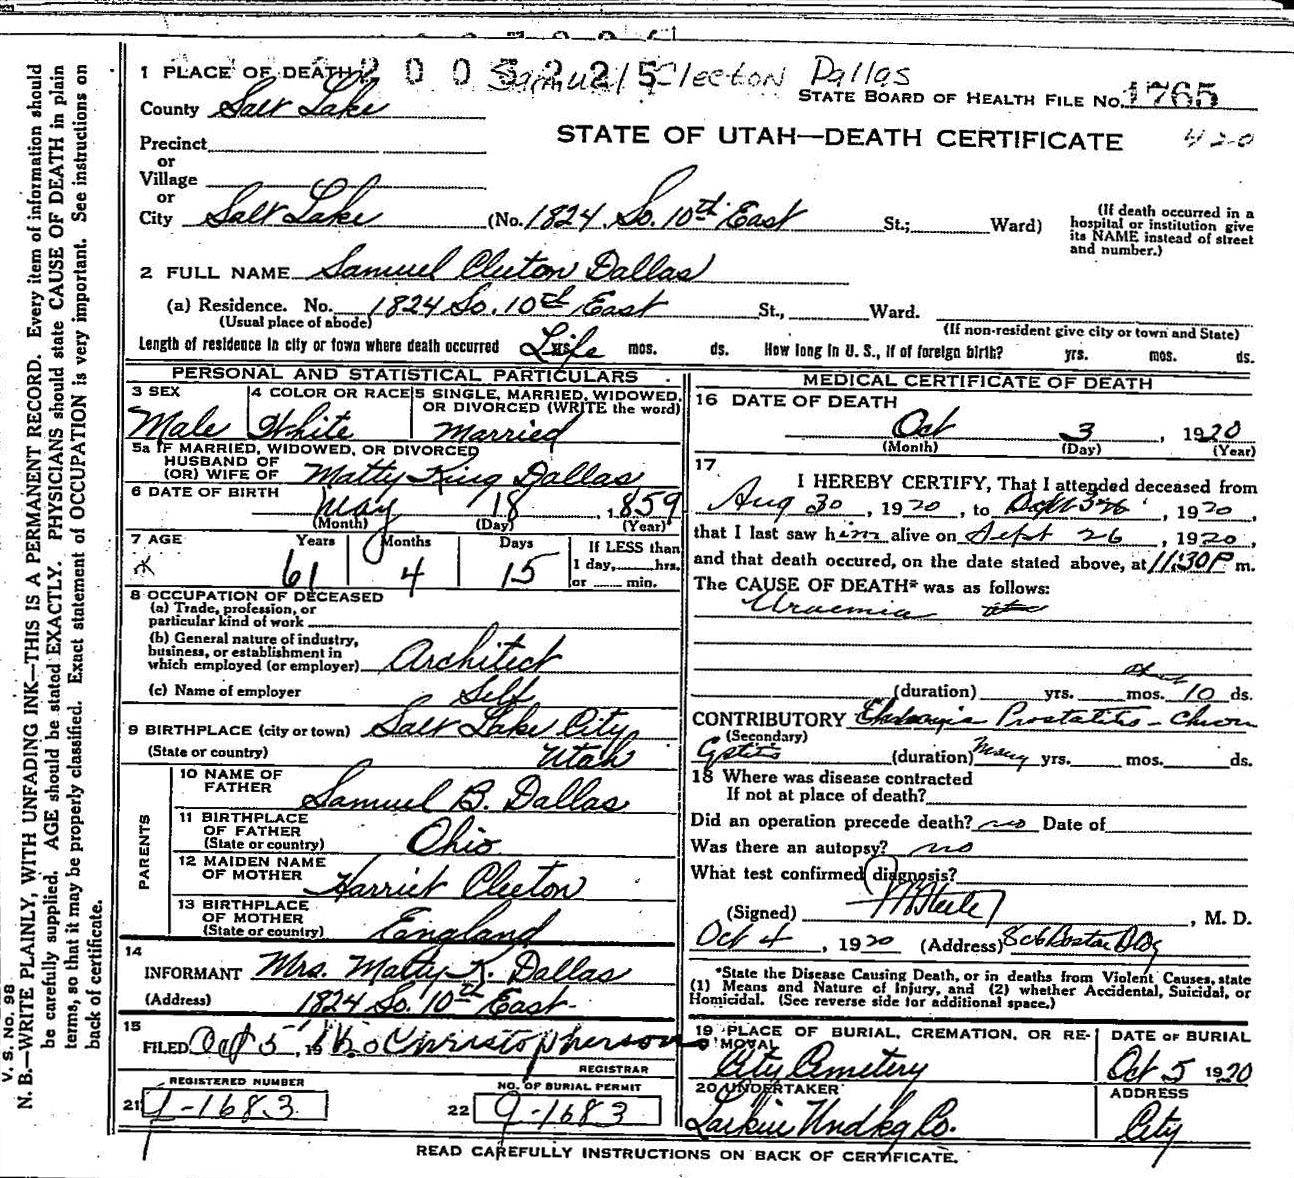 V. S. No. 98
N. B.—WRITE PLAINLY, WITH UNFADING INK—THIS IS A PERMANENT RECORD. Every item of information should
be carefully supplied. AGE should be stated EXACTLY. PHYSICIANS should state CAUSE OF DEATH in plain
terms, so that it may be properly classified. Exact statement of OCCUPATION is very important. See instructions on
back of certificate.
2005225
Samuel Cleeton Dallas
1 PLACE OF DEATH
STATE BOARD OF HEALTH FILE No. 1765
County Salt Lake
STATE OF UTAH—DEATH CERTIFICATE 420
Precinct
or
Village
or
City Salt Lake (No. 1824 So. 10th East St.; Ward)
(If death occurred in a
hospital or institution give
its NAME instead of street
and number.)
2 FULL NAME Samuel Cleeton Dallas
(a) Residence. No. 1824 So. 10th East St., Ward.
(Usual place of abode) (If non-resident give city or town and State)
Length of residence in city or town where death occurred Life yrs. mos. ds. How long in U. S., if of foreign birth? yrs. mos. ds.
PERSONAL AND STATISTICAL PARTICULARS
3 SEX 4 COLOR OR RACE 5 SINGLE, MARRIED, WIDOWED,
OR DIVORCED (WRITE the word)
Male White Married
5a IF MARRIED, WIDOWED, OR DIVORCED
HUSBAND OF
(OR) WIFE OF Matty King Dallas
6 DATE OF BIRTH
May 18, 1859
(Month) (Day) (Year)
7 AGE Years Months Days If LESS than
1 day, hrs.
61 4 15 or min.
8 OCCUPATION OF DECEASED
(a) Trade, profession, or
particular kind of work
(b) General nature of industry,
business, or establishment in
which employed (or employer) Architect
(c) Name of employer Self
9 BIRTHPLACE (city or town) Salt Lake City
(State or country) Utah
PARENTS
10 NAME OF
FATHER Samuel B. Dallas
11 BIRTHPLACE
OF FATHER
(State or country) Ohio
12 MAIDEN NAME
OF MOTHER Harriet Cleeton
13 BIRTHPLACE
OF MOTHER
(State or country) England
14
INFORMANT Mrs. Matty K. Dallas
(Address) 1824 So. 10th East
15
FILED Oct 5, 19 Christopherson
REGISTRAR
REGISTERED NUMBER NO. OF BURIAL PERMIT
21 9-1683 22 9-1683
MEDICAL CERTIFICATE OF DEATH
16 DATE OF DEATH
Oct 3, 1920
(Month) (Day) (Year)
17
I HEREBY CERTIFY, That I attended deceased from
Aug 30, 1920, to , 1920,
that I last saw him alive on Sept 26, 1920,
and that death occured, on the date stated above, at 11:30 P m.
The CAUSE OF DEATH* was as follows:
Uraemia
(duration) yrs. mos. 10 ds.
CONTRIBUTORY Prostatitis - Chron
(Secondary)
Cystitis (duration) Many yrs. mos. ds.
18 Where was disease contracted
If not at place of death?
Did an operation precede death? no Date of
Was there an autopsy? no
What test confirmed diagnosis?
(Signed) Steele, M. D.
Oct 4, 1920 (Address) 806 Boston Bldg
*State the Disease Causing Death, or in deaths from Violent Causes, state
(1) Means and Nature of Injury, and (2) whether Accidental, Suicidal, or
Homicidal. (See reverse side for additional space.)
19 PLACE OF BURIAL, CREMATION, OR RE- DATE OF BURIAL
MOVAL
City Cemetery Oct 5 1920
20 UNDERTAKER ADDRESS
Larkin Undkg Co. City
READ CAREFULLY INSTRUCTIONS ON BACK OF CERTIFICATE.